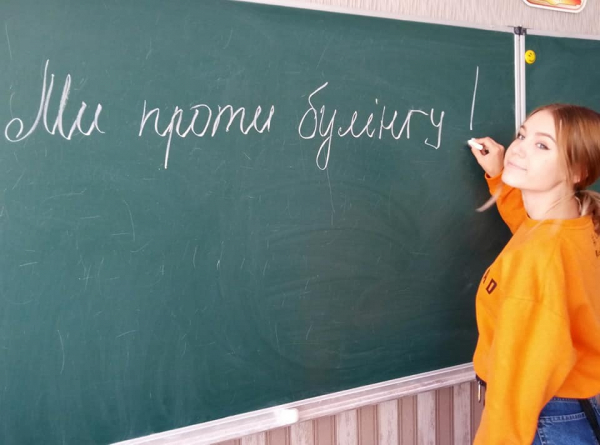 Ми проти булінгу!